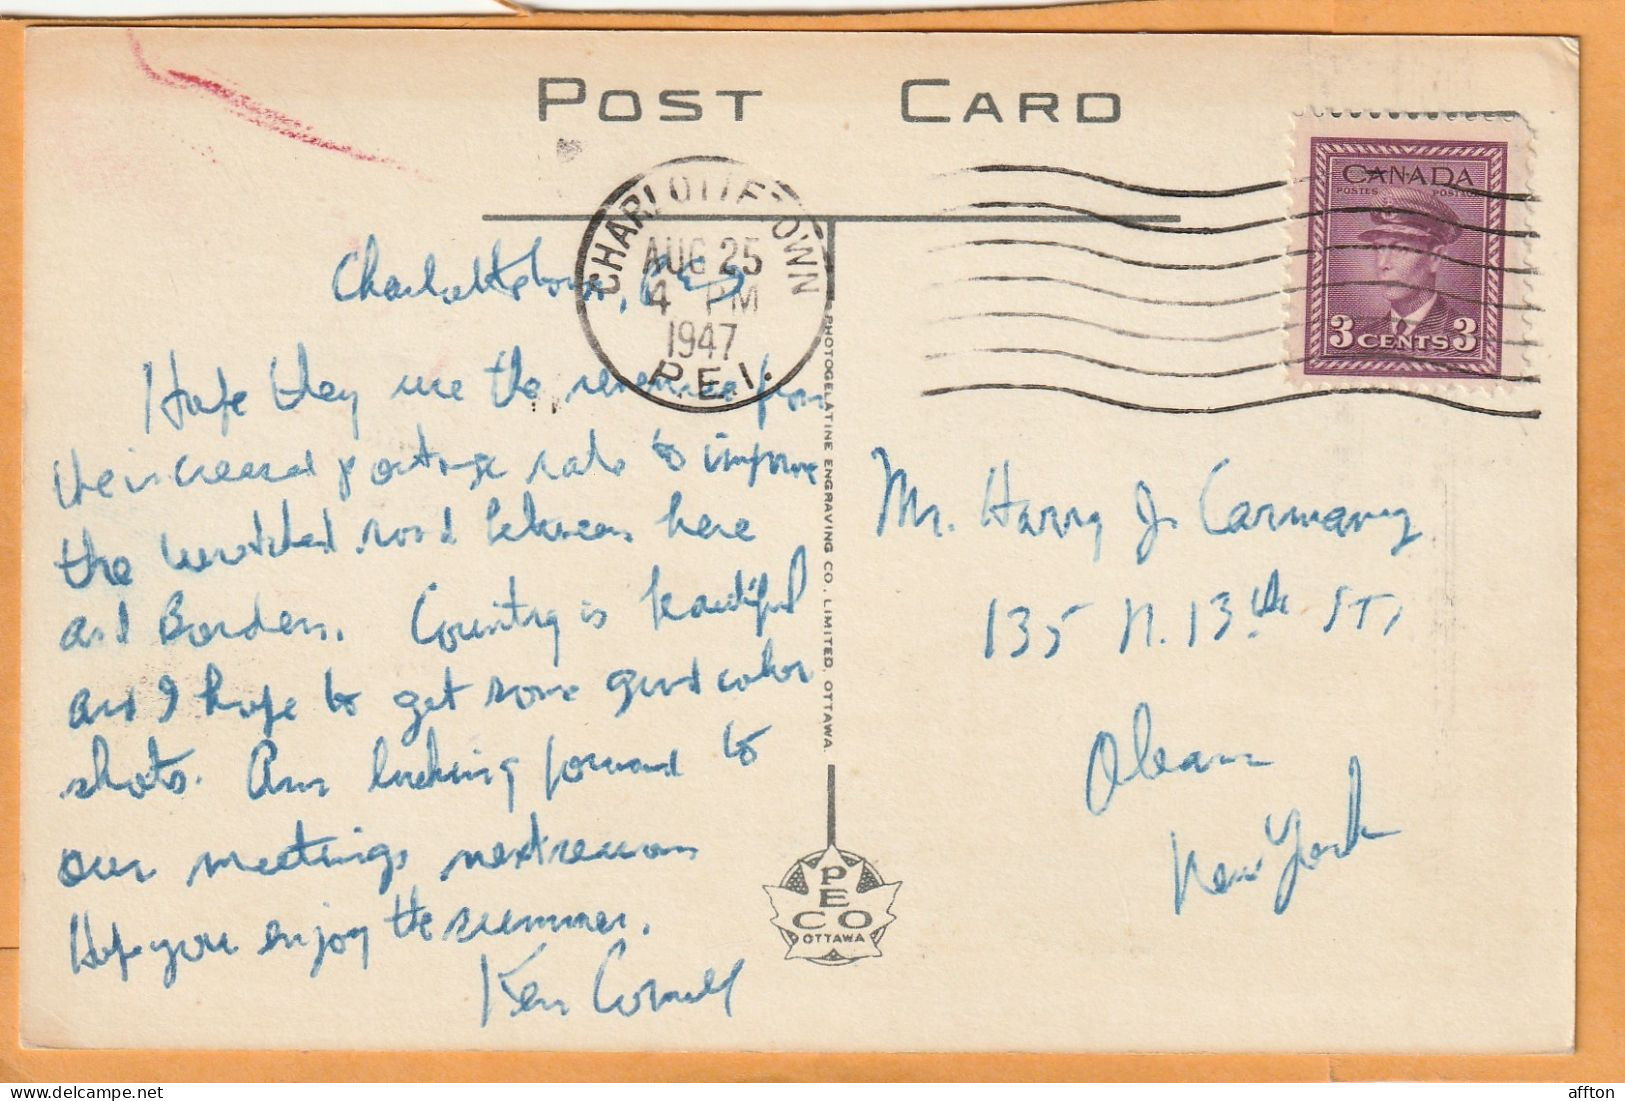 POST CARD
CANADA
POSTES POSTAGE
3 CENTS 3
CHARLOTTETOWN
AUG 25
4 PM
1947
P.E.I.
Charlottetown, P.E.I.
Hope they use the revenue from
the increased postage rate to improve
the wretched road between here
and Borden. Country is beautiful
and I hope to get some good color
shots. Am looking forward to
our meetings next season
Hope you enjoy the summer.
Ken Cornell
PHOTOGELATINE ENGRAVING CO. LIMITED, OTTAWA
PECO
OTTAWA
Mr. Harry J. Carmany
135 N. 13th ST,
Olean
New York
affton